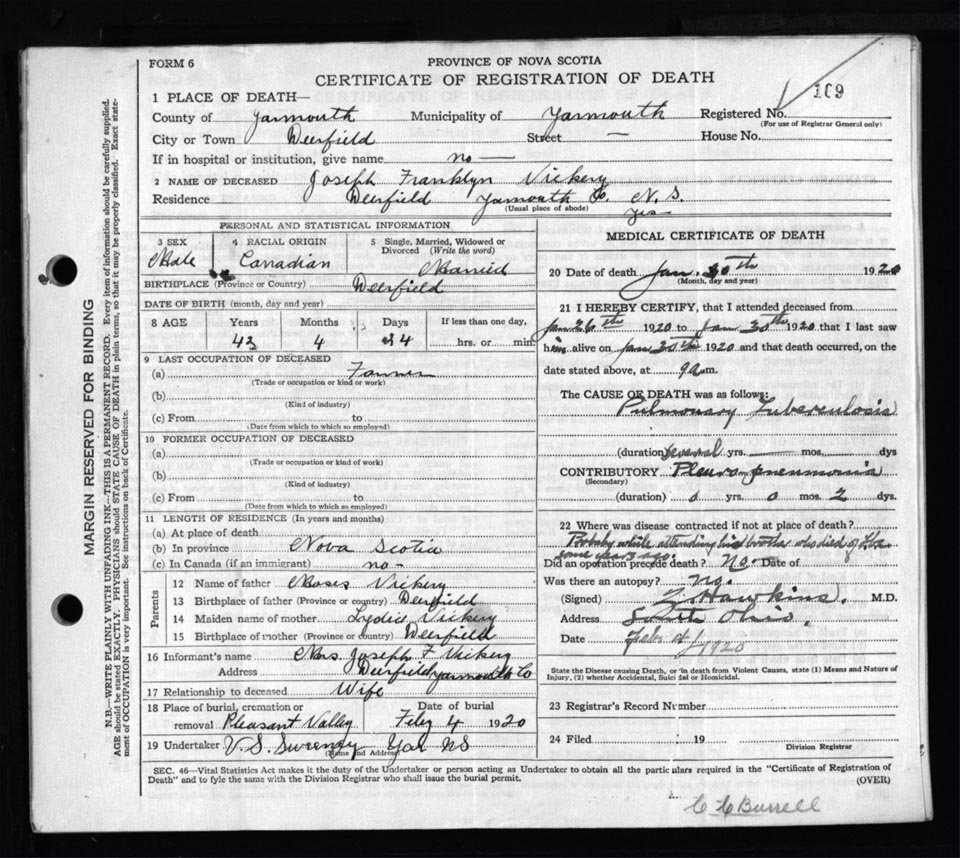 FORM 6
PROVINCE OF NOVA SCOTIA
CERTIFICATE OF REGISTRATION OF DEATH
1 PLACE OF DEATH—
County of Yarmouth Municipality of Yarmouth Registered No. 109
(For use of Registrar General only)
City or Town Deerfield Street — House No.
If in hospital or institution, give name no —
2 NAME OF DECEASED Joseph Franklyn Vickery
Residence Deerfield Yarmouth Co. N.S.
(Usual place of abode) yes
PERSONAL AND STATISTICAL INFORMATION
3 SEX Male
4 RACIAL ORIGIN Canadian
5 Single, Married, Widowed or Divorced (Write the word) Married
BIRTHPLACE (Province or Country) Deerfield
DATE OF BIRTH (month, day and year)
8 AGE Years Months Days If less than one day,
43 4 24 hrs. or min.
9 LAST OCCUPATION OF DECEASED
(a) Farmer
(Trade or occupation or kind or work)
(b)
(Kind of industry)
(c) From to
(Date from which to which so employed)
10 FORMER OCCUPATION OF DECEASED
(a)
(Trade or occupation or kind of work)
(b)
(Kind of industry)
(c) From to
(Date from which to which so employed)
11 LENGTH OF RESIDENCE (In years and months)
(a) At place of death
(b) In province Nova Scotia
(c) In Canada (if an immigrant) no -
Parents
12 Name of father Moses Vickery
13 Birthplace of father (Province or country) Deerfield
14 Maiden name of mother Lydia Vickery
15 Birthplace of mother (Province or country) Deerfield
16 Informant's name Mrs Joseph F Vickery
Address Deerfield Yarmouth Co
17 Relationship to deceased Wife
18 Place of burial, cremation or removal Pleasant Valley Date of burial Feby 4 1920
19 Undertaker V.S. Sweeney Yar NS
(Name and Address)
MEDICAL CERTIFICATE OF DEATH
20 Date of death Jan. 30th 1920
(Month, day and year)
21 I HEREBY CERTIFY, that I attended deceased from
Jan 26th 1920 to Jan 30th 1920 that I last saw
him alive on Jan 30th 1920 and that death occurred, on the
date stated above, at 9 a.m.
The CAUSE OF DEATH was as follows:
Pulmonary Tuberculosis
(duration) several yrs. — mos. dys
CONTRIBUTORY Pleuro pneumonia
(Secondary)
(duration) 0 yrs. 0 mos. 2 dys.
22 Where was disease contracted if not at place of death?
Probably while attending his brother who died of
some years ago.
Did an operation precede death? No. Date of
Was there an autopsy? No.
(Signed) Z Hawkins. M.D.
Address South Ohio.
Date 1920
State the Disease causing Death, or in death from Violent Causes, state (1) Means and Nature of
Injury, (2) whether Accidental, Suicidal or Homicidal.
23 Registrar's Record Number
24 Filed 19
Division Registrar
SEC. 46—Vital Statistics Act makes it the duty of the Undertaker or person acting as Undertaker to obtain all the particulars required in the "Certificate of Registration of
Death" and to fyle the same with the Division Registrar who shall issue the burial permit.
(OVER)
Burrell
MARGIN RESERVED FOR BINDING
N.B.—WRITE PLAINLY WITH UNFADING INK—THIS IS A PERMANENT RECORD. Every item of information should be carefully supplied.
AGE should be stated EXACTLY. PHYSICIANS should STATE CAUSE OF DEATH in plain terms, so that it may be properly classified. Exact state-
ment of OCCUPATION is very important. See instructions on back of Certificate.